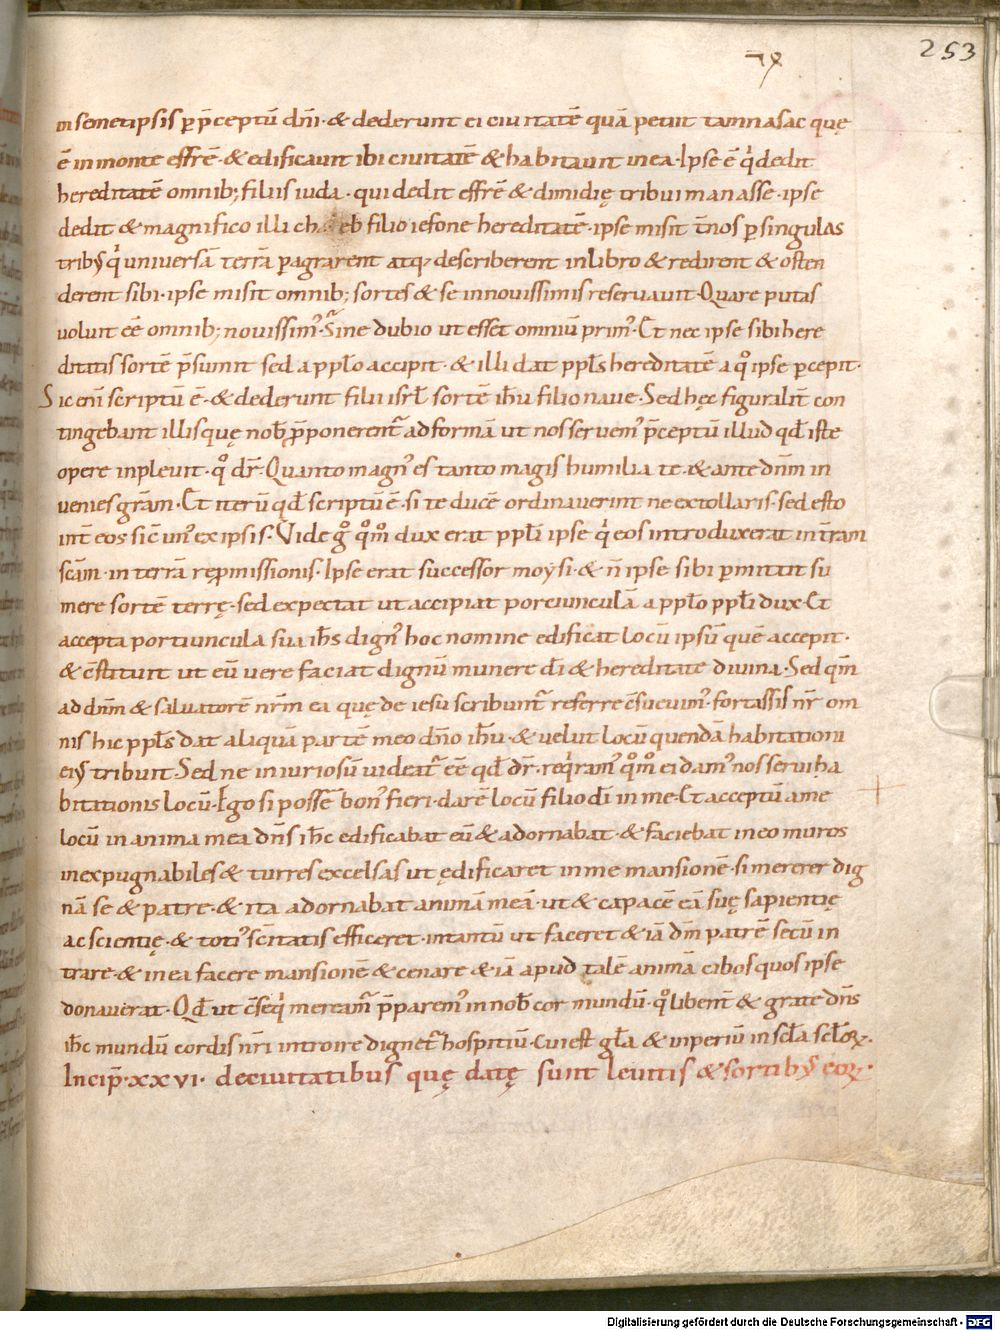 253
in semetipsis p̱ p̄ceptū dn̄i · & dederunt ei ciuitatē quā petiit tamnasac quę
ē in monte effrē · & edificauit ibi ciuitatē & habitauit in ea · Ipse ē qͥ dedit
hereditatē omnib; filiis iuda · qui dedit effrē & dimidię tribui manasse · ipse
dedit & magnifico illi chaleb filio iefone hereditatē · ipse misit t̄nos p̱ singulas
tribꝰ qͥ universā terrā p̱agrarent atq; describerent in libro & redirent & osten
derent sibi · ipse misit omnib; sortes & se in novissimis reseruauit · Quare putas
uoluit eē omnib; novissimꝰ · Sine dubio ut esset omniū primꝰ · Et nec ipse sibi here
ditatis sortē p̄sumit sed a pplo accipit · & illi dat ppls hereditatē a qͦ ipse p̱cepit ·
Sic enī scriptū ē · & dederunt filii isrl̄ sortē ihū filio naue · Sed hęc figuralit̄ con
tingebant illis quę nob̄ p̄ponerentᷣ ad formā ut nos seruemꝰ p̄ceptū illud qd̄ iste
opere inpleuit · qͦ dr̄ · Quanto magnꝰ es tanto magis humilia te · & ante dn̄m in
uenies grām · Et iterū qd̄ scriptū ē · si te ducē ordinaverint ne extollaris · sed esto
int̄ eos sic̄ unꝰ ex ipsis · Vide gͦ qͦm̄ dux erat ppli ipse qͥ eos introduxerat in t̄ram
sc̄am · in terrā rep̱missionis · Ipse erat successor moysi · & n̄ ipse sibi p̱mittit su
mere sortē terrę · sed expectat ut accipiat porciunculā a pplo ppli dux · Et
accepta portiuncula sua ih̄s dignꝰ hoc nomine edificat locū ipsū quē accepit ·
& c̄stituit ut eū uere faciat dignū munere dī & hereditate diuina · Sed qm̄
ad dn̄m & saluatorē nr̄m ea quę de iesu scribuntᷣ referre c̄sueuimꝰ · fortassis nr̄ om
nis hic ppls dat aliquā partē meo dn̄o ihū · & uelut locū quendā habitationi
eiꝰ tribuit · Sed ne iniuriosū uideatᷣ eē qd̄ dr̄ · reqͥramꝰ qͦm̄ ei damꝰ nos serui ha
bitationis locū · Ego si possē bonꝰ fieri · darē locū filio dī in me · Et acceptū a me
locū in anima mea dn̄s ih̄c edificabat eū & adornabat · & faciebat in eo muros
inexpugnabiles & turres excelsas ut ędificaret in me mansionē · si mererer dig
nā se & patre · & ita adornabat animā meā · ut & capacē eā suę sapientię
ac scientię · & totiꝰ sc̄itatis efficeret · in tantū ut faceret & iā dm̄ patrē secū in
trare · & in ea facere mansionē & cenare & iā apud talē animā cibos quos ipse
donauerat · Qd̄ ut c̄seqͥ mereamᷣ p̄paremꝰ in nob̄ cor mundū · qͦ libent̄ & grate dn̄s
ih̄c mundū cordis nr̄i introire dignetᷣ hospitiū · Cui est gl̄a & inperiū in scl̄a scl̄oꝝ ·
Incip̄ · xxvi · de ciuitatibus quę datę sunt leuitis & sortibꝰ eoꝝ ·
Digitalisierung gefördert durch die Deutsche Forschungsgemeinschaft - DFG